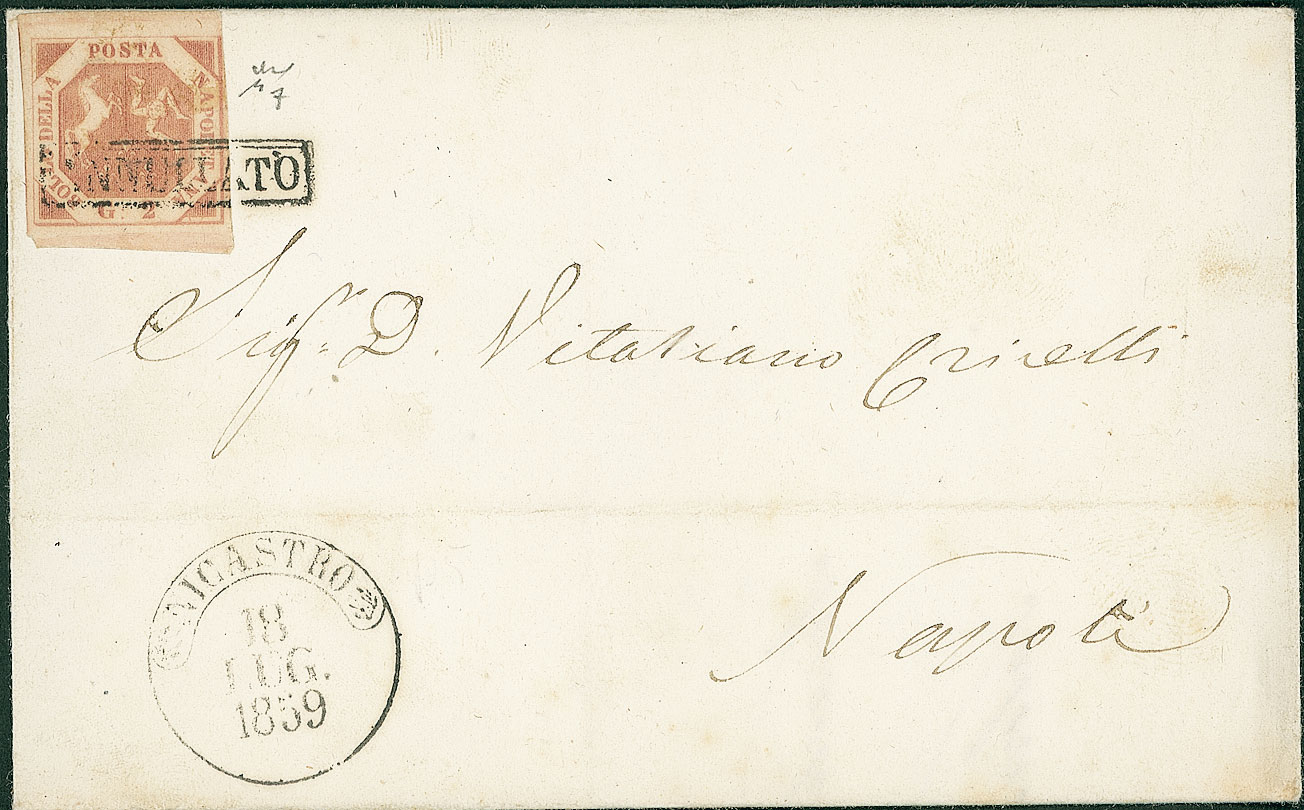 POSTA
NAPOLETANA
BOLLO DELLA
G. 2
ANNULLATO
Sigr. D. Vitaliano Crivelli
Napoli
NICASTRO
18
LUG.
1859